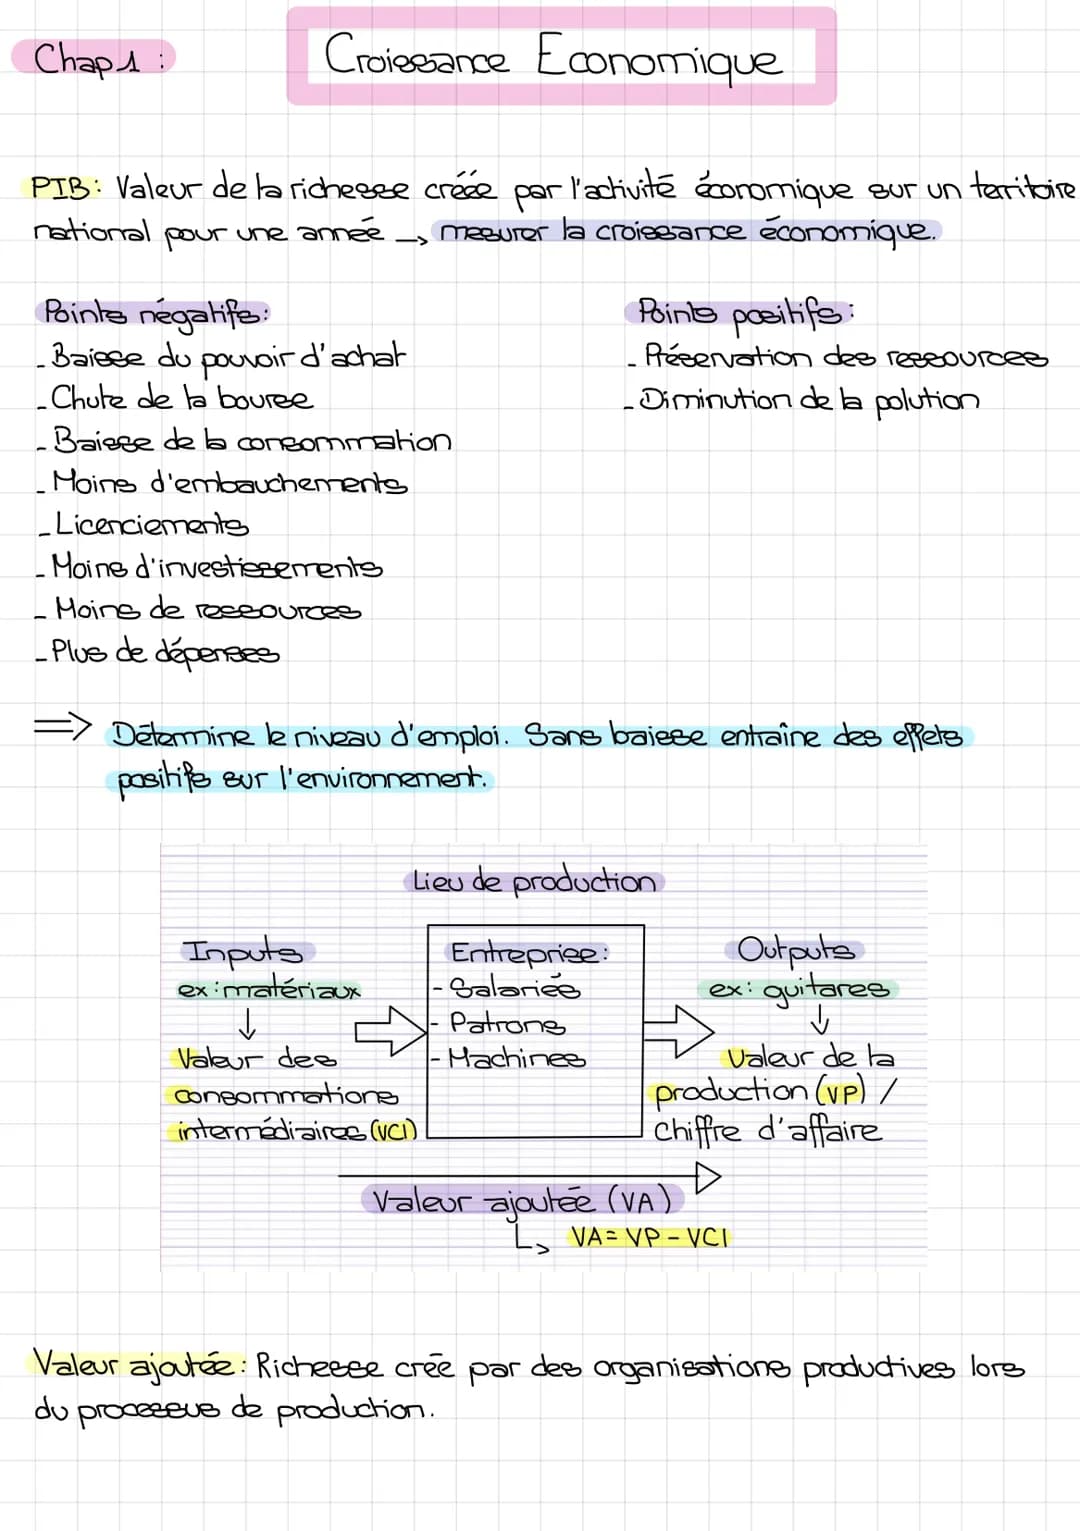 Chap 1 :
Croissance Economique
PIB : Valeur de la richesse créée par l'activité économique sur un territoire
national pour une année → mesurer la croissance économique.
Points négatifs :
- Baisse du pouvoir d'achat
- Chute de la bourse
- Baisse de la consommation
- Moins d'embauchements
- Licenciements
- Moins d'investissements
- Moins de ressources
- Plus de dépenses
Points positifs :
- Préservation des ressources
- Diminution de la polution
⇒ Détermine le niveau d'emploi. Sans baisse entraîne des effets
positifs sur l'environnement.
Lieu de production
Inputs
ex : matériaux
↓
Valeur des
consommations
intermédiaires (VCI)
Entreprise :
- Salariés
- Patrons
- Machines
Outputs
ex : guitares
↓
Valeur de la
production (VP) /
Chiffre d'affaire
Valeur ajoutée (VA)
↳ VA = VP - VCI
Valeur ajoutée : Richesse crée par des organisations productives lors
du processus de production.